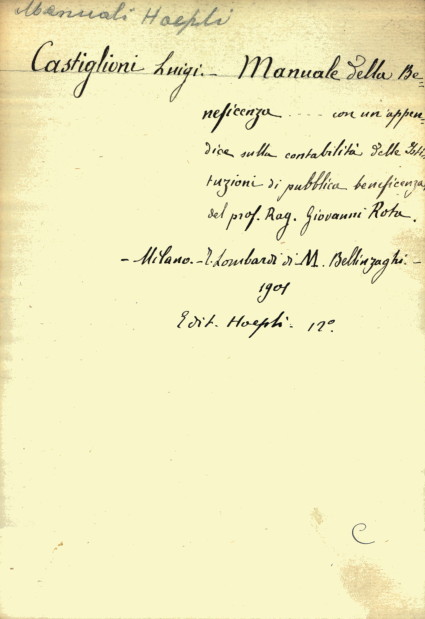 Manuali Hoepli
Castiglioni Luigi. - Manuale della Be-
neficenza .... con un'appen-
dice sulla contabilità delle Isti-
tuzioni di pubblica beneficenza,
del prof. Rag. Giovanni Rota.
- Milano. - T. Lombardi di M. Bellinzaghi. -
1901
Edit. Hoepli. 12°.
C